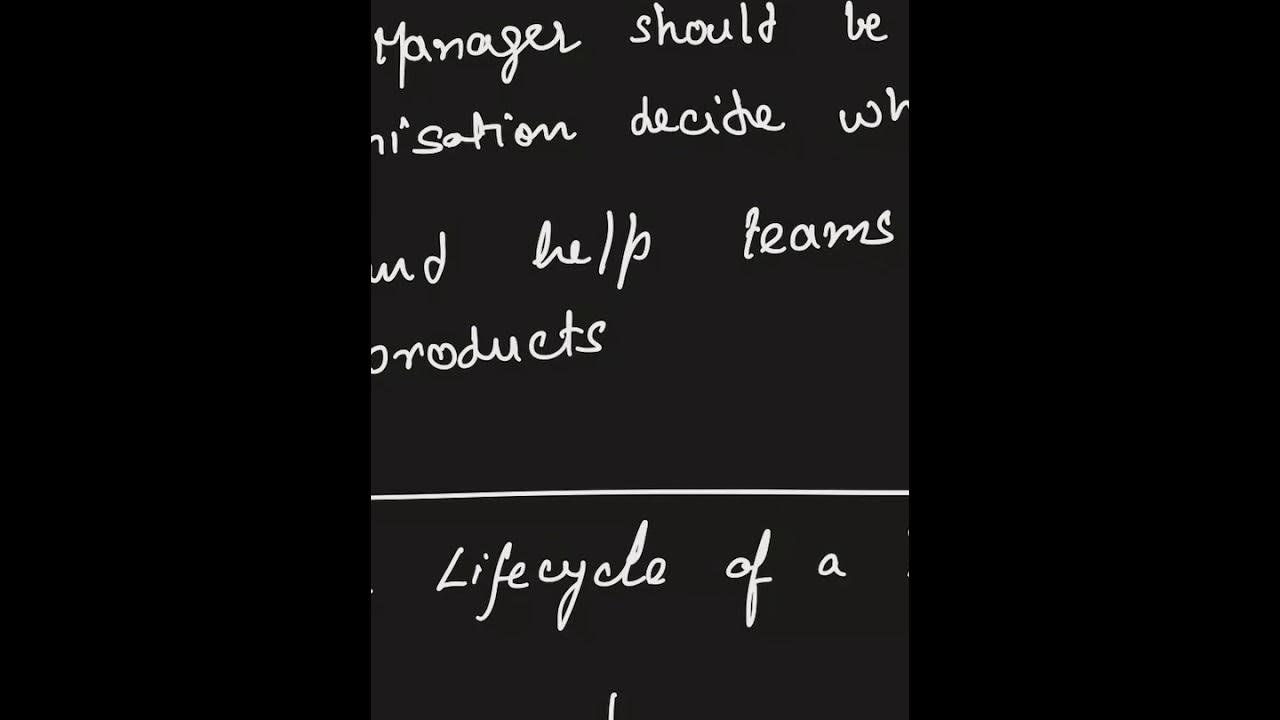 Manager should be
nisation decide wh
and help teams
products
Lifecycle of a